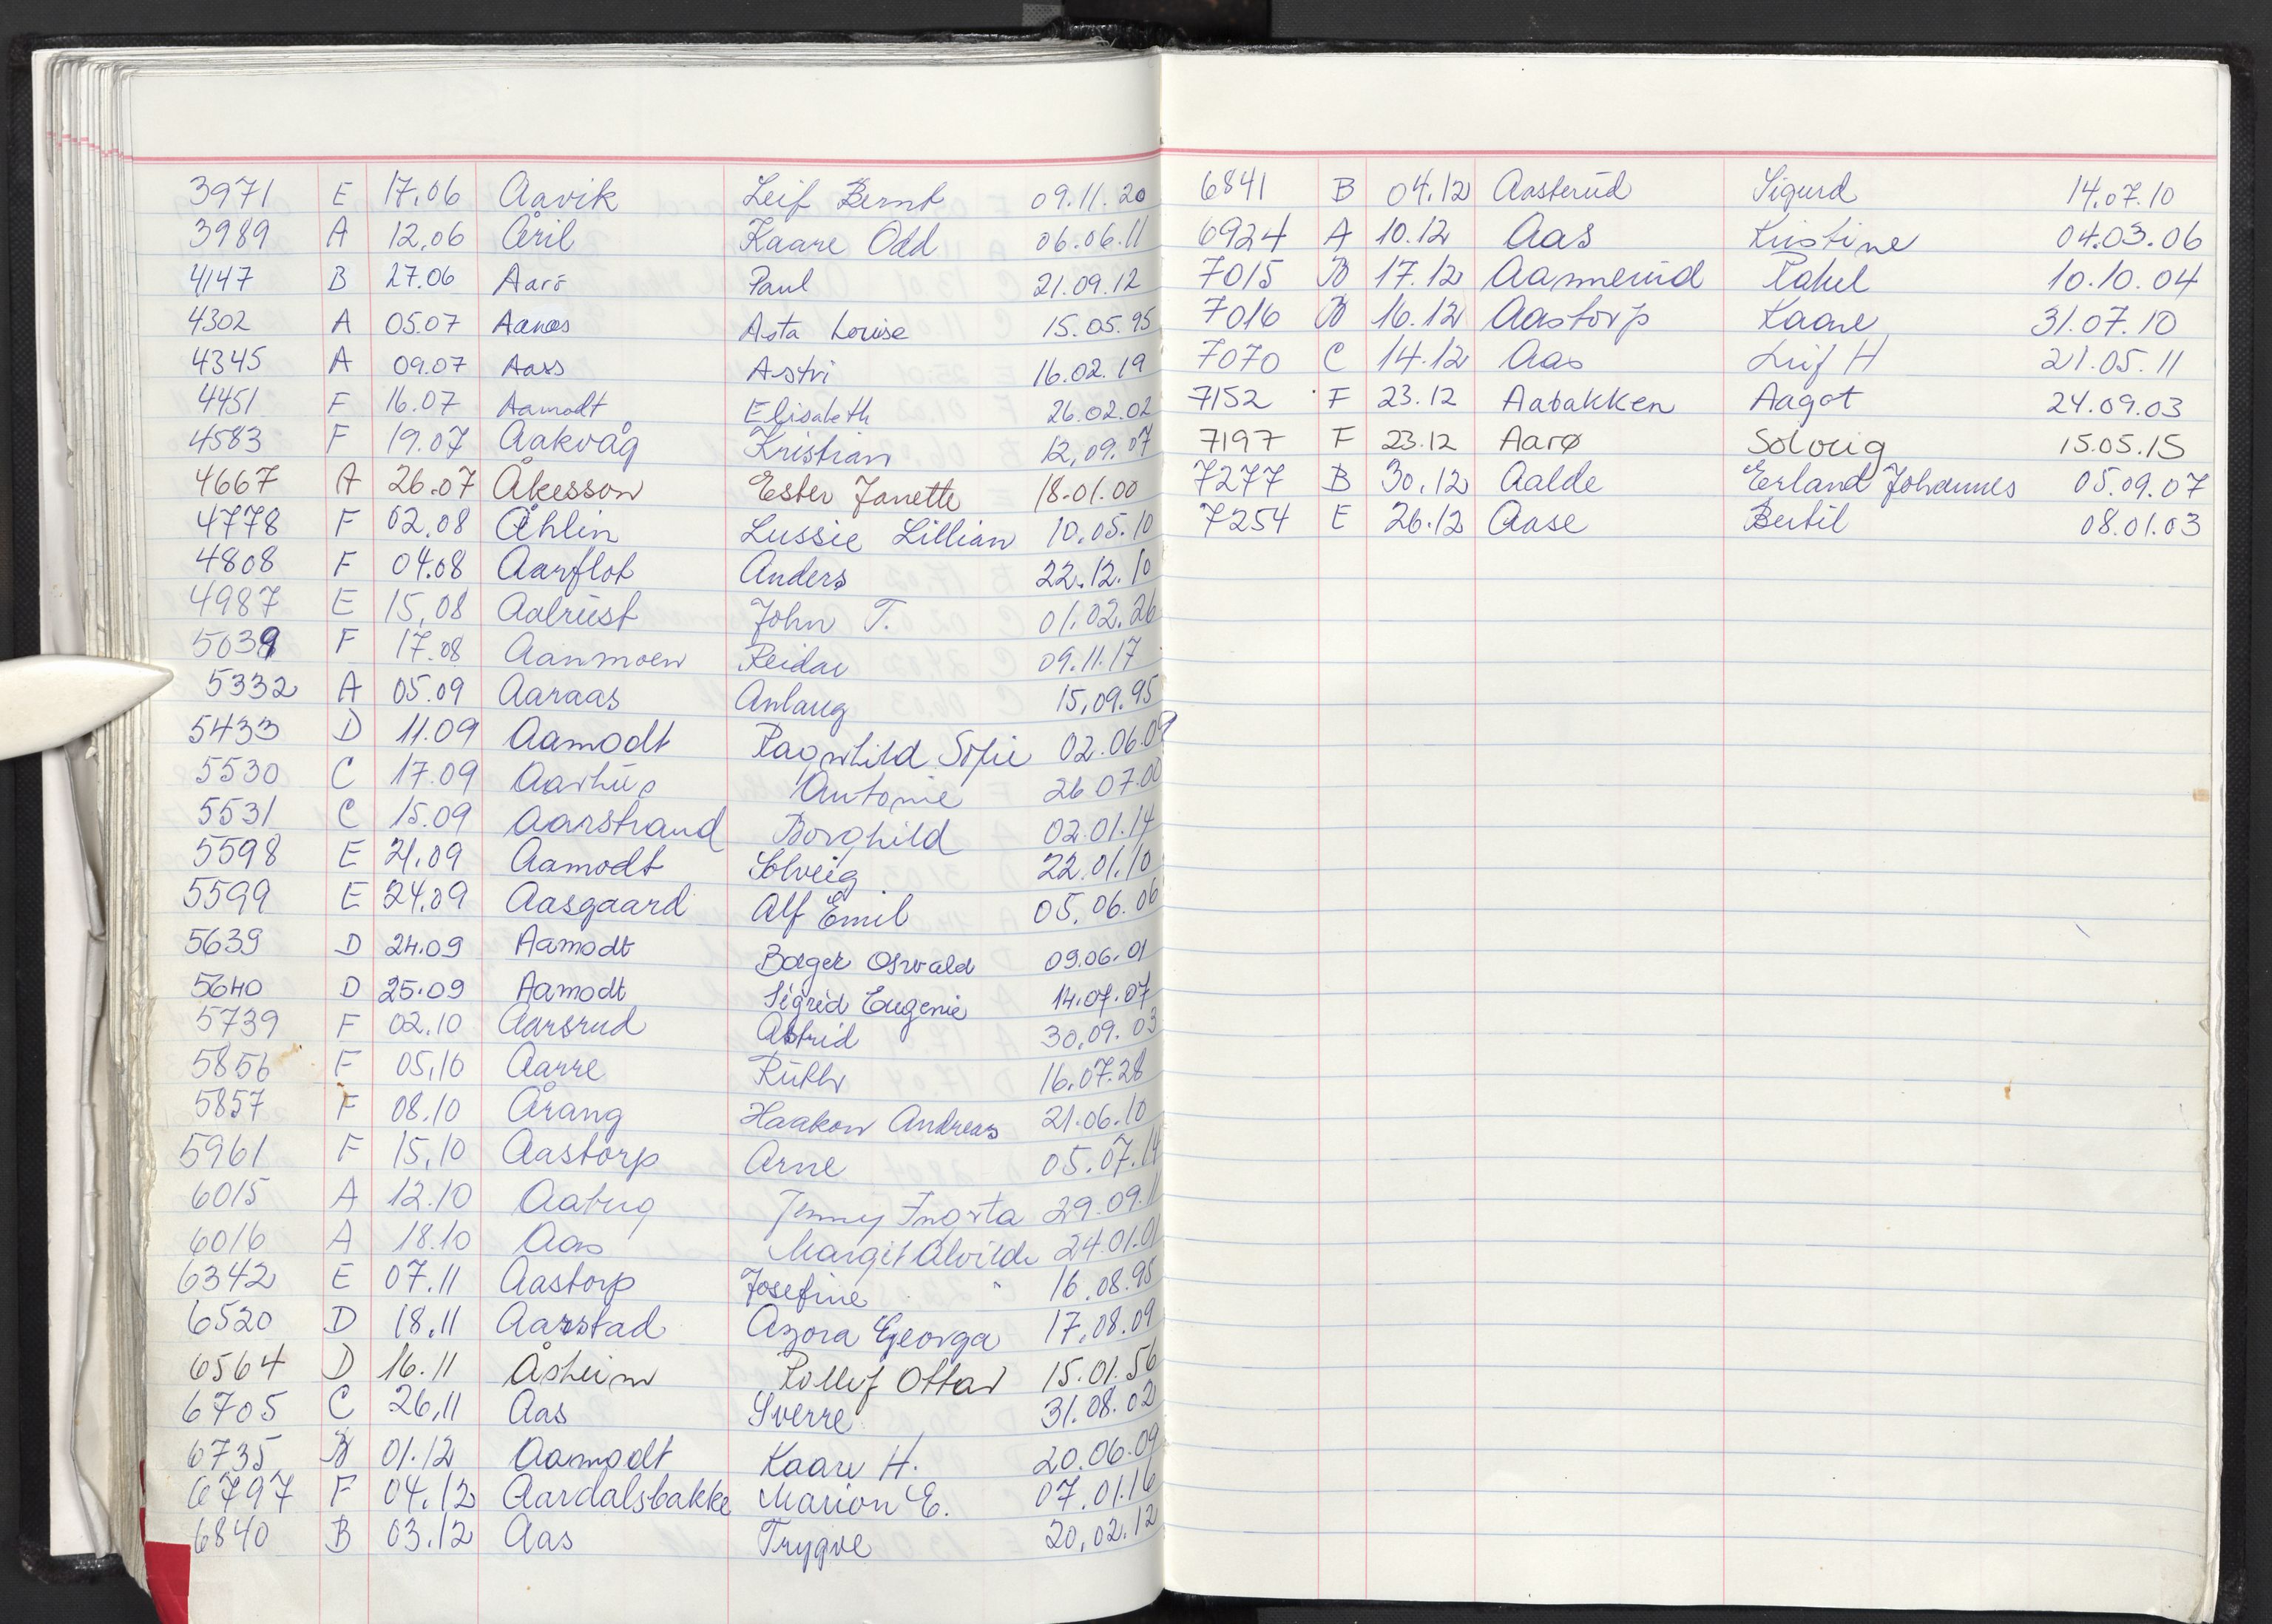 3971 E 17.06 Aavik Leif Bernt 09.11.20
3989 A 12.06 Åril Kaare Odd 06.06.11
4147 B 27.06 Aarø Paul 21.09.12
4302 A 05.07 Aanes Asta Louise 15.05.95
4345 A 09.07 Aass Astri 16.02.19
4451 F 16.07 Aamodt Elisabeth 26.02.02
4583 F 19.07 Aakvåg Kristian 12.09.07
4667 A 26.07 Åkesson Ester Janette 18.01.00
4778 F 02.08 Åhlin Lussie Lillian 10.05.10
4808 F 04.08 Aarflot Anders 22.12.10
4987 E 15.08 Aalrust John T. 01.02.26
5039 F 17.08 Aanmoen Reidar 09.11.17
5332 A 05.09 Aaraas Anlaug 15.09.95
5433 D 11.09 Aamodt Ragnhild Sofie 02.06.09
5530 C 17.09 Aarhus Antonie 26.07.00
5531 C 15.09 Aarstrand Borghild 02.01.14
5598 E 21.09 Aamodt Solveig 22.01.10
5599 E 24.09 Aasgaard Alf Emil 05.06.06
5639 D 24.09 Aamodt Børger Oswald 09.06.01
5640 D 25.09 Aamodt Sigrid Eugenie 14.07.07
5739 F 02.10 Aarsrud Astrid 30.09.03
5856 F 05.10 Aarre Ruth 16.07.28
5857 F 08.10 Årang Haakon Andreas 21.06.10
5961 F 15.10 Aastorp Arne 05.07.14
6015 A 12.10 Aabrig Jenny Ingrta 29.09.11
6016 A 18.10 Aas Margit Alvilde 24.01.01
6342 E 07.11 Aastorp Josefine 16.08.95
6520 D 18.11 Aarstad Azora Georga 17.08.09
6564 D 16.11 Åsheim Rollef Ottar 15.01.56
6705 C 26.11 Aas Sverre 31.08.02
6735 B 01.12 Aamodt Kaare H. 20.06.09
6797 F 04.12 Aardalsbakke Marion E. 07.01.16
6840 B 03.12 Aas Trygve 20.02.12
6841 B 04.12 Aasterud Sigurd 14.07.10
6924 A 10.12 Aas Kristine 04.03.06
7015 B 17.12 Aamnerud Rakel 10.10.04
7016 B 16.12 Aastorp Kaare 31.07.10
7070 C 14.12 Aas Leif H 21.05.11
7152 F 23.12 Aabakken Aagot 24.09.03
7197 F 23.12 Aarø Solveig 15.05.15
7277 B 30.12 Aalde Erland Johannes 05.09.07
7254 E 26.12 Aase Bertil 08.01.03